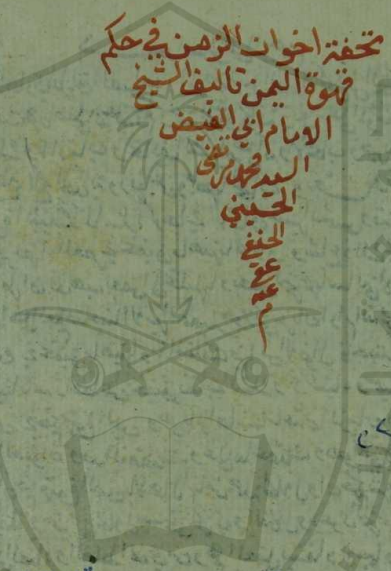 تحفة اخوان الزمن في حكم
قهوة اليمن تاليف الشيخ
الامام ابي الفيض
السيد محمد مرتضى
الحسيني
الحنفي
عفي
عنه
م